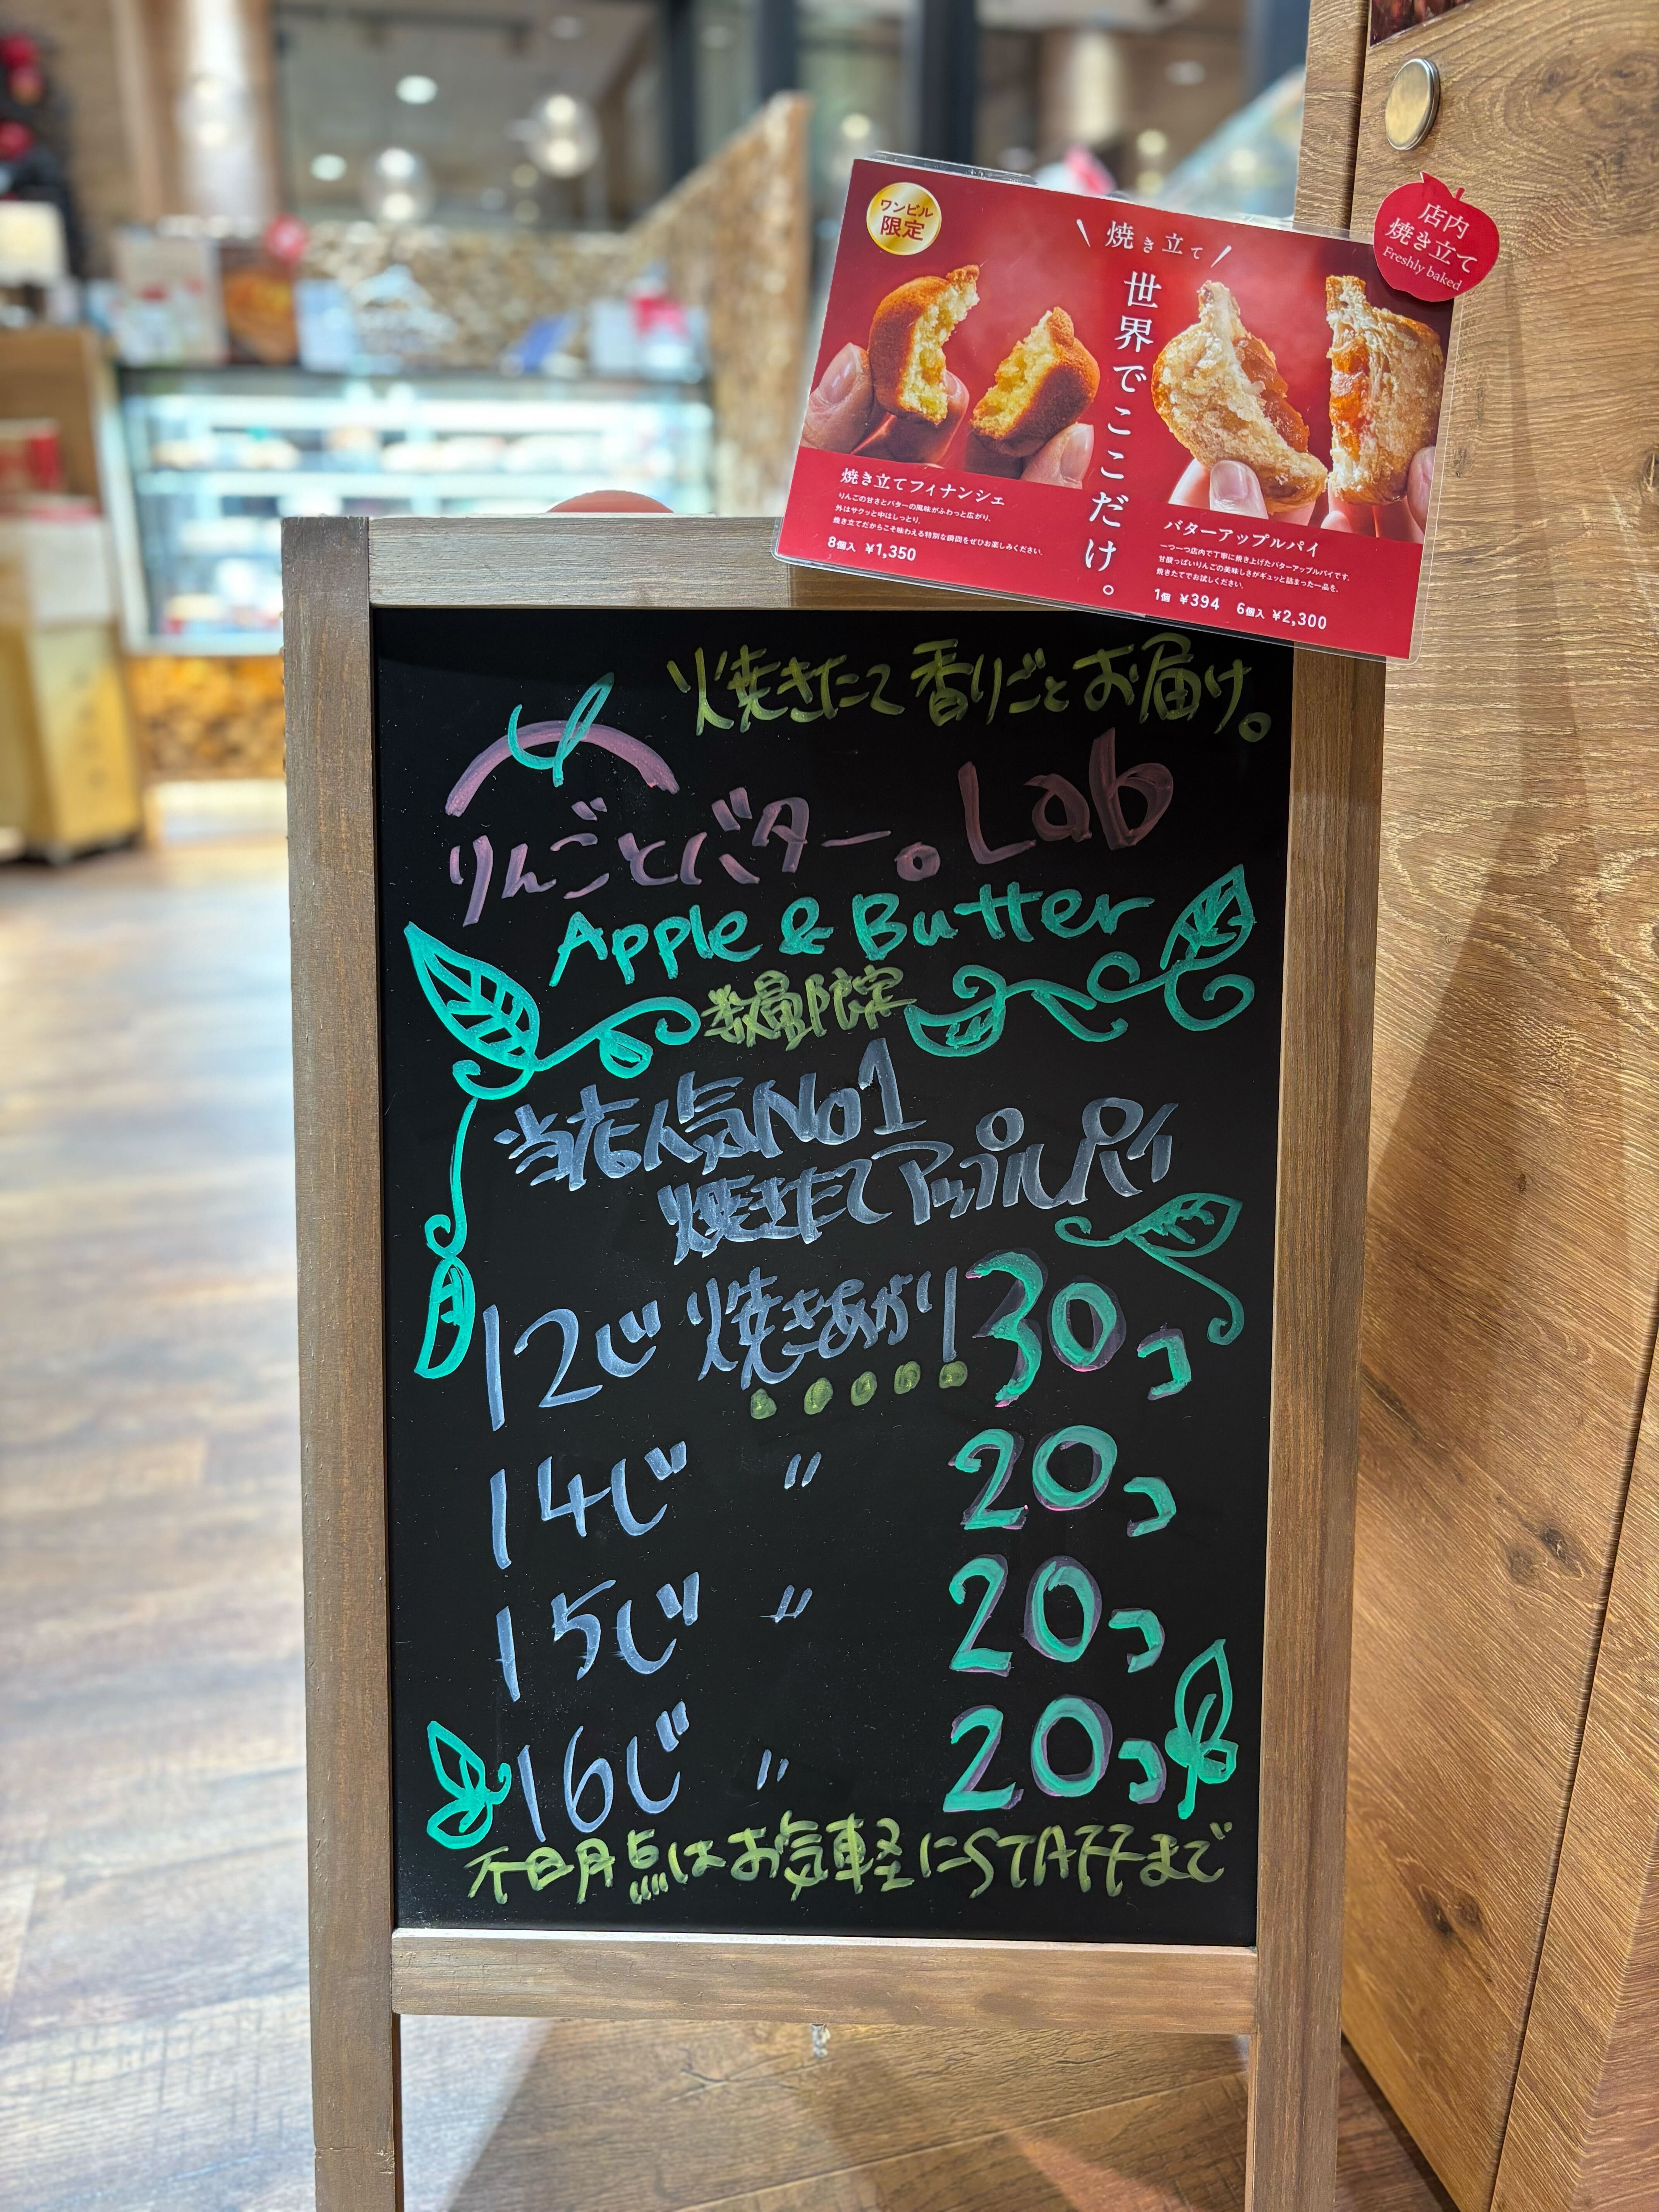 ワンビル
限定
焼き立て
世界でここだけ。
店内
焼き立て
Freshly baked
焼き立てフィナンシェ
りんごの甘さとバターの風味がふわっと広がり、
外はサクッと中はしっとり。
焼き立てだからこそ味わえる特別な瞬間をぜひお楽しみください。
8個入 ¥1,350
バターアップルパイ
一つ一つ店内で丁寧に焼き上げたバターアップルパイです。
甘酸っぱいりんごの美味しさがギュッと詰まった一品を、
焼きたてでお試しください。
1個 ¥394 6個入 ¥2,300
焼きたて香りごとお届け。
りんごとバター。Lab
Apple & Butter
数量限定
当店人気No1
焼きたてアップルパイ
12じ 焼きあがり 30コ
14じ 〃 20コ
15じ 〃 20コ
16じ 〃 20コ
不明点はお気軽にSTAFFまで